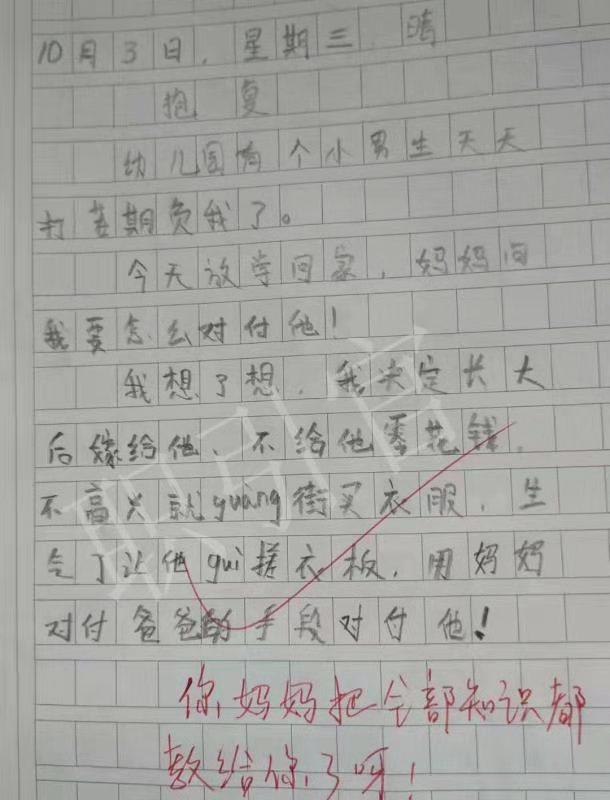 10月3日，星期三 晴
抱复
幼儿园有个小男生天天
打差期负我了。
今天放学回家，妈妈问
我要怎么对付他！
我想了想，我决定长大
后嫁给他、不给他零花钱，
不高兴就guàng街买衣服，生
气了让他guì搓衣板，用妈妈
对付爸爸的手段对付他！
你妈妈把全部知识都
教给你了呀！
职引官